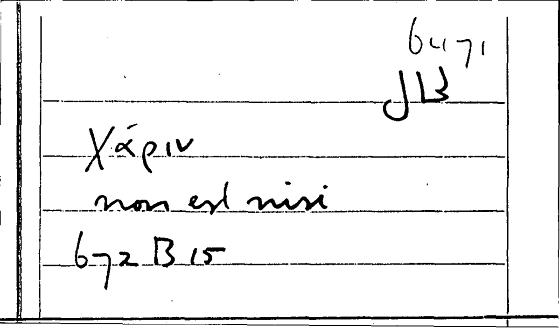 6471
JB
χάριν
non est nisi
672 B 15